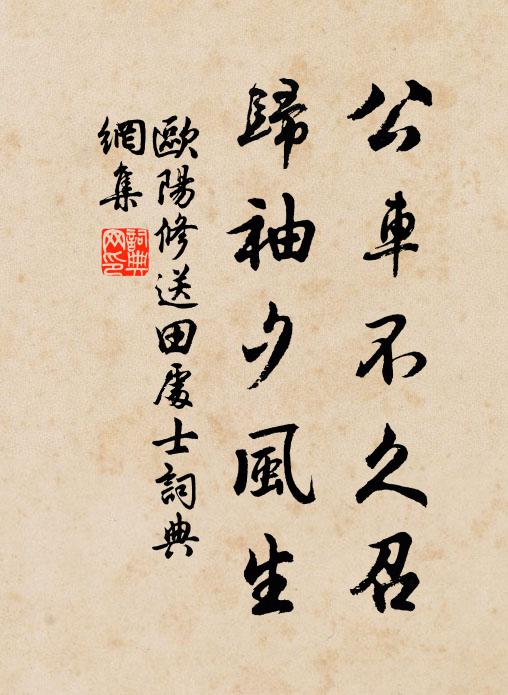 公車不久召
歸袖夕風生
歐陽修送田處士詞典
網集
詞典
网印